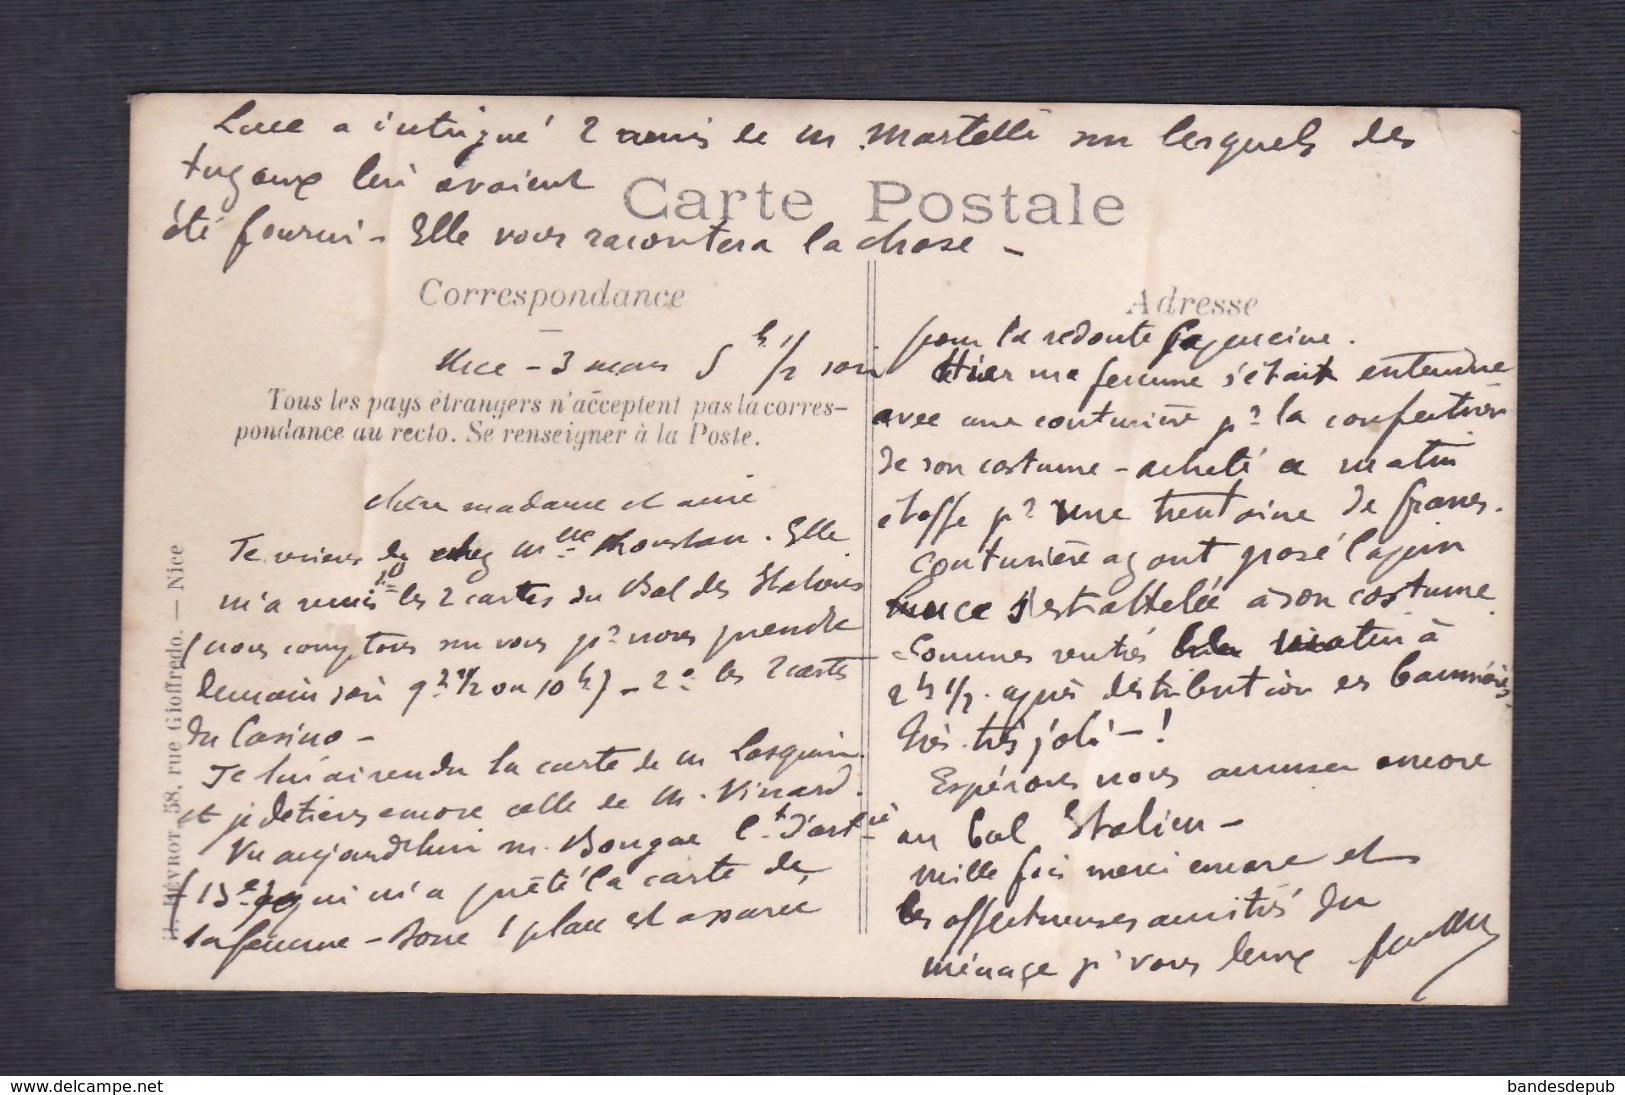 Luce a intrigué 2 amis de M Martelli sur lesquels des
tuyaux lui avaient
été fourni - Elle vous racontera la chose -
Carte Postale
Correspondance
Adresse
Nice - 3 mars 5 h 1/2 soir
Tous les pays étrangers n'acceptent pas la corres-
pondance au recto. Se renseigner à la Poste.
Chère madame et amie
Je viens de chez Mme. Elle
m'a remis 1º les 2 cartes du Bal des Italiens
(nous comptons sur vous pr nous prendre
demain soir 9 h 1/2 ou 10 h) - 2º les 2 cartes
du Casino -
Je lui ai rendu la carte de M
et je détiens encore celle de M. Vinard.
Vu aujourd'hui M. Lt d'artie
qui m'a prêté la carte de
sa femme - donc 1 place est assurée
pour la redoute.
Hier ma femme s'était entendue
avec une couturière pr la confection
de son costume - acheté ce matin
étoffe pr une trentaine de francs.
Couturière ayant posé lapin
Luce s'est attelée à son costume.
Sommes rentrés ce matin à
2 h 1/2 après distribution des bannières
Très très joli - !
Espérons nous amuser encore
au bal Italien -
Mille fois merci encore et
les affectueuses amitiés du
ménage pr vous deux
H. HÉVROT, 58, rue Gioffredo. — Nice
Delcampe.net
bandesdepub